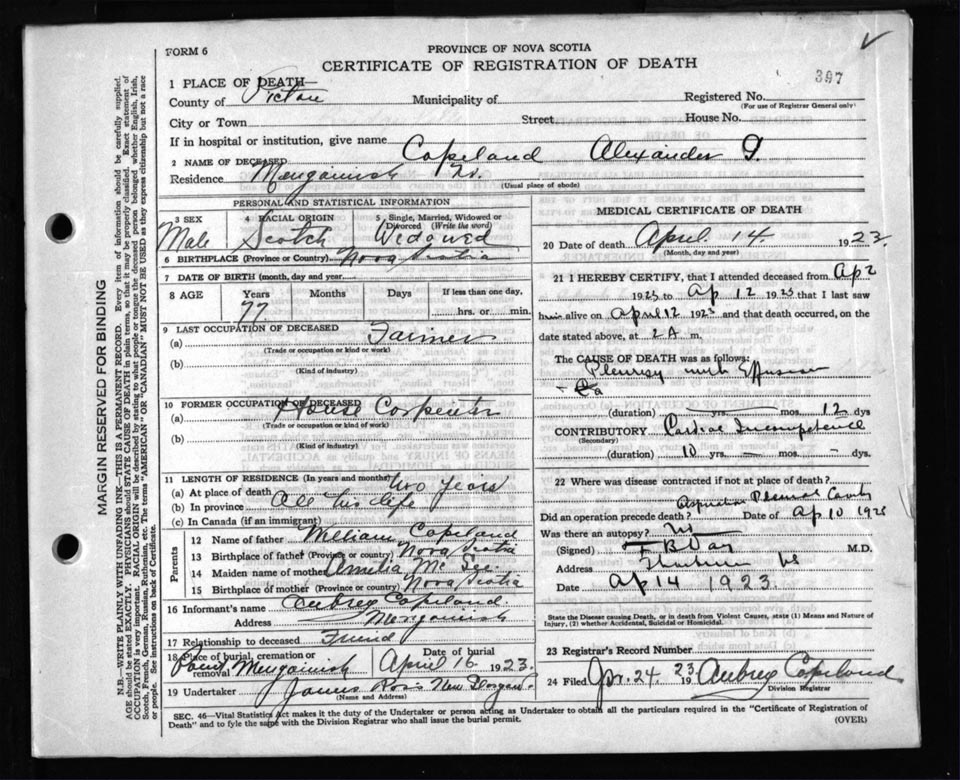 FORM 6
PROVINCE OF NOVA SCOTIA
CERTIFICATE OF REGISTRATION OF DEATH
397
1 PLACE OF DEATH—
County of Pictou Municipality of Registered No.
(For use of Registrar General only)
City or Town Street House No.
If in hospital or institution, give name
2 NAME OF DECEASED Copeland Alexander G.
Residence
(Usual place of abode)
PERSONAL AND STATISTICAL INFORMATION
3 SEX Male
4 RACIAL ORIGIN Scotch
5 Single, Married, Widowed or Divorced (Write the word) Widowed
6 BIRTHPLACE (Province or Country) Nova Scotia
7 DATE OF BIRTH (month, day and year)
8 AGE Years Months Days If less than one day,
77 hrs. or min.
9 LAST OCCUPATION OF DECEASED
(a) Farmer
(Trade or occupation or kind or work)
(b)
(Kind of industry)
10 FORMER OCCUPATION OF DECEASED
(a) House Carpenter
(Trade or occupation or kind or work)
(b)
(Kind of industry)
11 LENGTH OF RESIDENCE (In years and months)
(a) At place of death two years
(b) In province All his life
(c) In Canada (if an immigrant)
Parents
12 Name of father William Copeland
13 Birthplace of father (Province or country) Nova Scotia
14 Maiden name of mother Amelia McGee
15 Birthplace of mother (Province or country) Nova Scotia
16 Informant's name Aubrey Copeland.
Address
17 Relationship to deceased Friend
18 Place of burial, cremation or removal
Date of burial April 16 1923.
19 Undertaker James Ross New Glasgow
(Name and Address)
MEDICAL CERTIFICATE OF DEATH
20 Date of death April 14. 1923
(Month, day and year)
21 I HEREBY CERTIFY, that I attended deceased from Ap 2
1923 to Ap 12 1923 that I last saw
him alive on April 12 1923 and that death occurred, on
date stated above, at 2 A m.
The CAUSE OF DEATH was as follows:
Pleurisy with Effusion
(duration) yrs. mos. 12 dys
CONTRIBUTORY Cardiac Incompetence
(Secondary)
(duration) 10 yrs. – mos. – dys.
22 Where was disease contracted if not at place of death?
Aspiration Pleural Cavity
Did an operation precede death? Date of Ap 10 1923
Was there an autopsy? No
(Signed) F B Day M.D.
Address
Date Ap 14 1923.
State the Disease causing Death, or in death from Violent Causes, state (1) Means and Nature of
Injury, (2) whether Accidental, Suicidal or Homicidal.
23 Registrar's Record Number
24 Filed Apr. 24 1923 Aubrey Copeland
Division Registrar
SEC. 46—Vital Statistics Act makes it the duty of the Undertaker or person acting as Undertaker to obtain all the particulars required in the "Certificate of Registration of
Death" and to fyle the same with the Division Registrar who shall issue the burial permit.
(OVER)
MARGIN RESERVED FOR BINDING
N.B.—WRITE PLAINLY WITH UNFADING INK—THIS IS A PERMANENT RECORD. Every item of information should be carefully supplied.
AGE should be stated EXACTLY. PHYSICIANS should STATE CAUSE OF DEATH in plain terms, so that it may be properly classified. Exact statement of
OCCUPATION is very important. RACIAL ORIGIN will be described by stating to what people or tongue the deceased person belonged whether English, Irish,
Scotch, French, German, Russian, Ruthenian, etc. The terms "AMERICAN" OR "CANADIAN" MUST NOT BE USED as they express citizenship but not a race
or people. See instructions on back of Certificate.